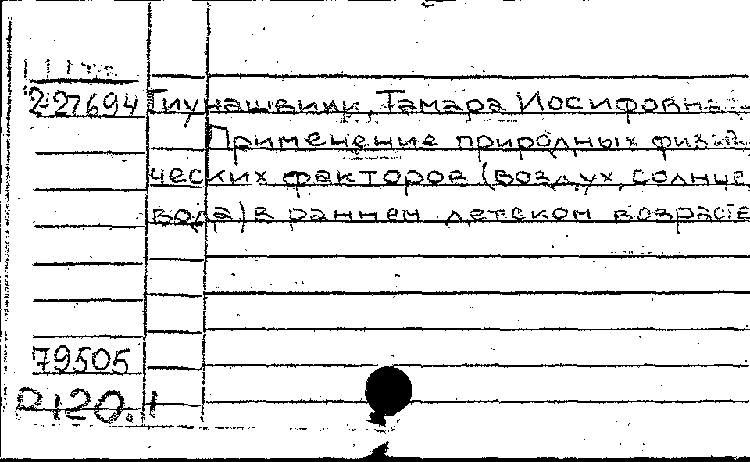 2-27694 Гиунашвили, Тамара Иосифовна
Применение природных физи-
ческих факторов (воздух, солнце,
вода) в раннем детском возрасте
79505
Р120.1